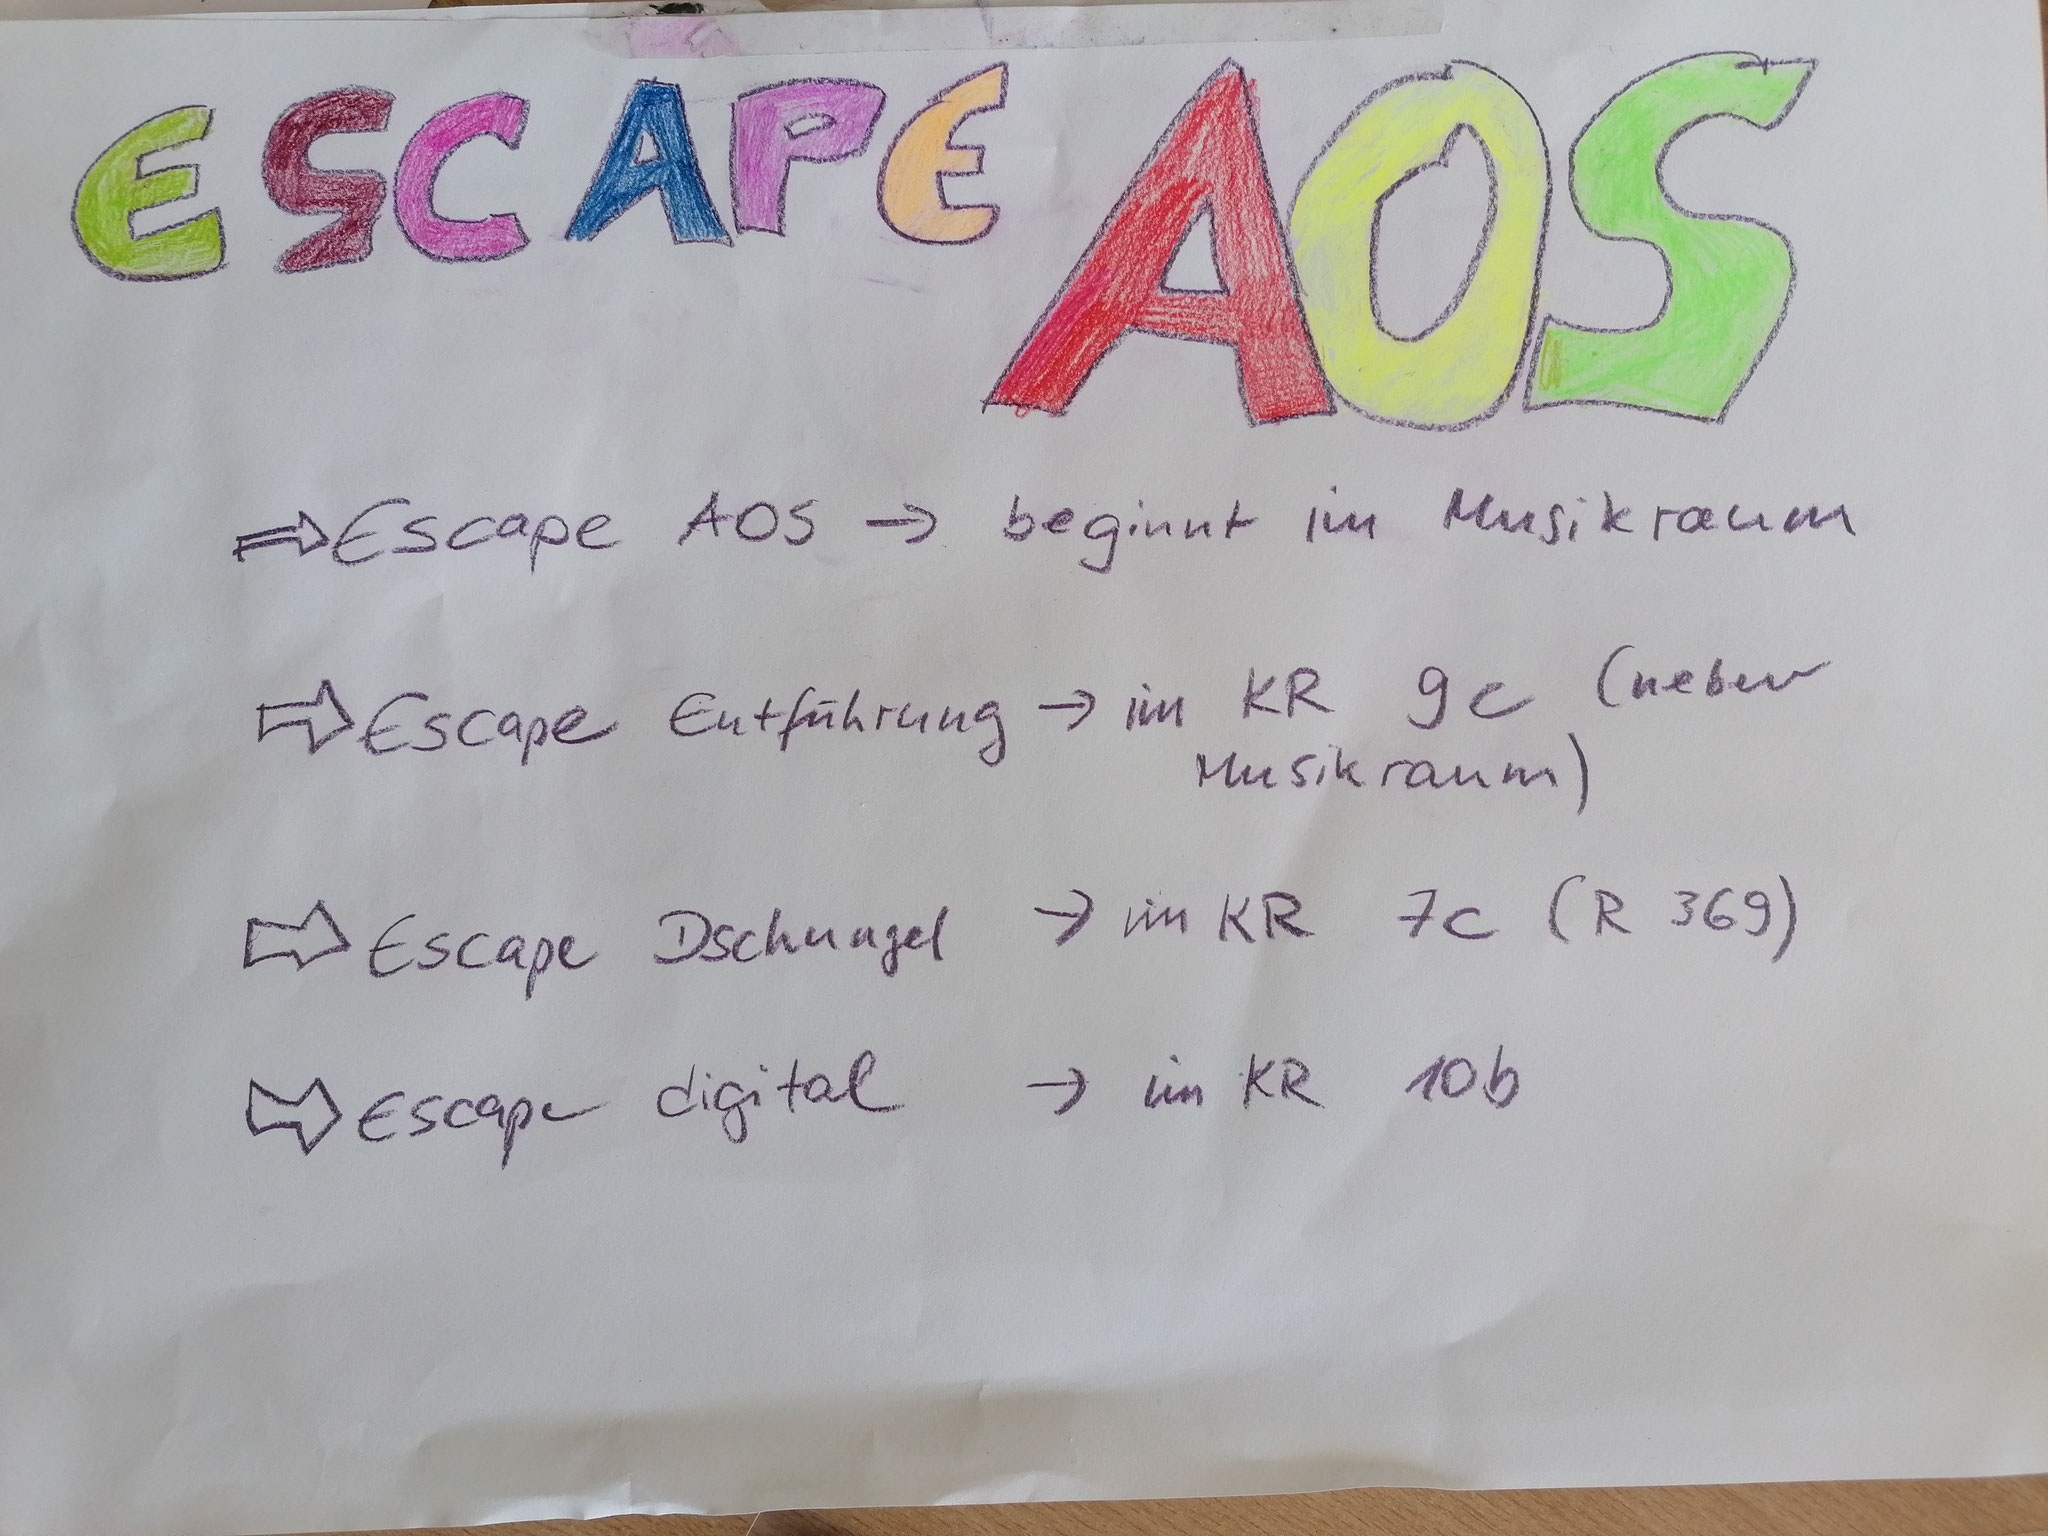 ESCAPE AOS
⇒ Escape AOS → beginnt im Musikraum
⇒ Escape Entführung → im KR 9c (neben
Musikraum)
⇒ Escape Dschungel → im KR 7c (R 369)
⇒ Escape digital → im KR 10b